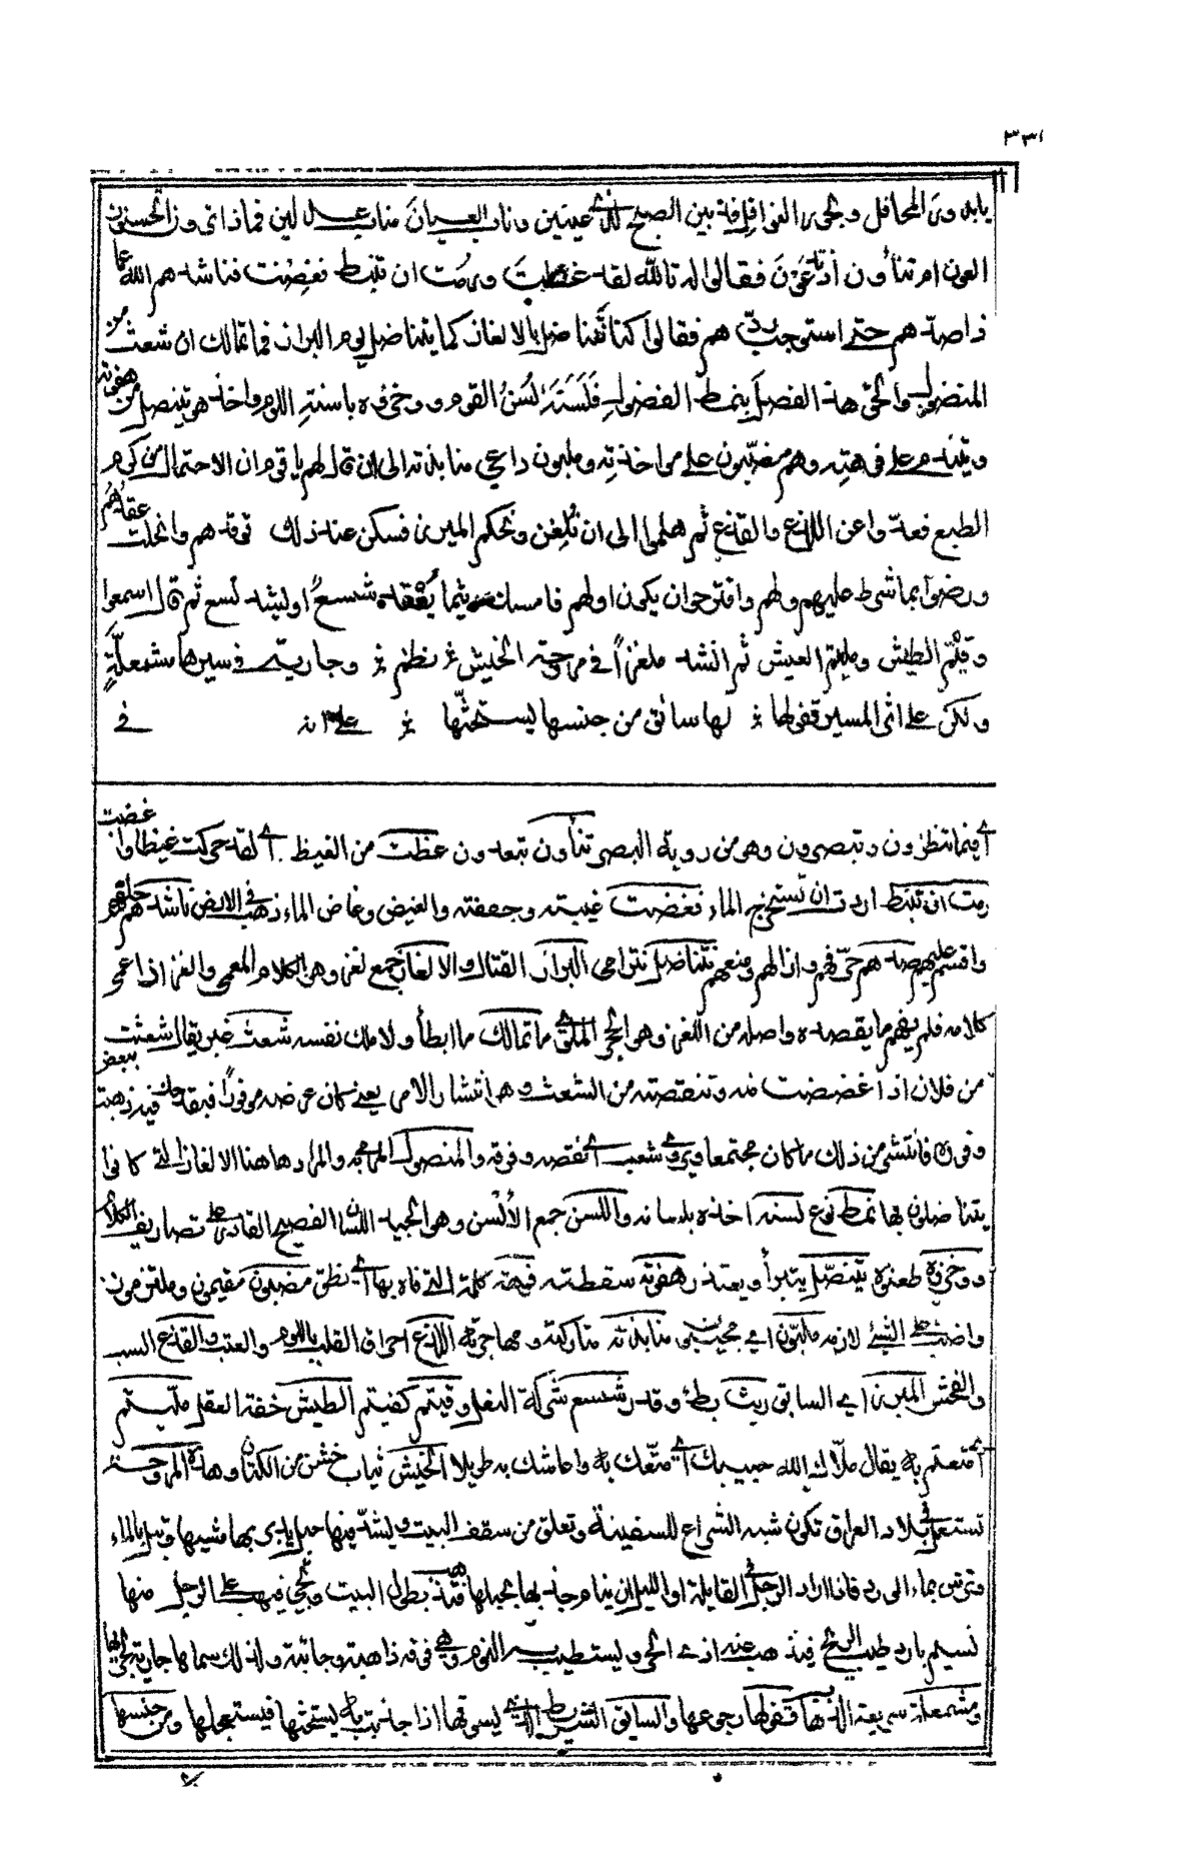 ٣٣١
يا بدور المحافل وبحور النوافل قد بين الصبح لذي عينين وناب العيان مناب عدلين فماذا ترون الحسن
العون ام تنأون اذ تدعون فقالوا له تالله لقد غظت ورمت ان تنبط فغضت فناشدهم الله عما
ذا صدهم حتى استوجب ردهم فقالوا كنا نتناضل بالالغاز كما يتناضل يوم البراز فما تمالك ان شعث من
المنضول والحق هذا الفضل بنمط الفضول فلسنته لسن القوم ووخزوه باسنة اللوم واخذ هو يتنصل من هفوته
ويتندم على فوهته وهم مضبون على مؤاخذته وملبون داعي منابذته الى ان قال لهم يا قوم ان الاحتمال من كرم
الطبع فعدوا عن اللذع والقذع ثم هلموا الى ان نلغز ونحكم المبرز فسكن عند ذلك توقدهم وانحلت عقدهم
ورضوا بما شرط عليهم ولهم واقترحوا ان يكون اولهم فامسك ريثما يعقد شسع او يشد نسع ثم قال اسمعوا
وقيتم الطيش ومليتم العيش ثم انشد ملغزا في مروحة الخيش نظم وجارية في سيرها مشمعلة
ولكن على اثر المسير قفولها لها سائق من جنسها يستحثها على في
اي فيما تنظرون وتبصرون وهو من روية البصر تنأون تبعدون غظت من الغيظ اي لقد حركت غيظا وان غضت
رمت ان تنبط اردت ان تستخرج الماء فغضت غيبته وجففته والغيض وغاض الماء ذهب في الارض ناشدهم حلفهم
واقسم عليهم صدهم حرفهم وازالهم ومنعهم نتناضل نترامى البراز القتال والالغاز جمع لغز وهو الكلام المعمى والغز اذا عمى
كلامه فلم يفهم ما يقصده واصله من اللغز وهو الحجر الملتوي ما تمالك ما ابطأ ولا ملك نفسه شعث غبر يقال شعثت
من فلان اذا غضضت منه وتنقصته من الشعث وهو انتشار الامر يعني كان عرضه موفورا فبقدحك فيه ذهبت ببعض
وفوره فانتشر من ذلك ما كان مجتمعا ويروى شعب اي نقصه وفرقه والمنضول المرمى به والمراد هاهنا الالغاز التي كانوا
يتناضلون بها نمط نوع لسنه اخذه بلسانه واللسن جمع الألسن وهو الجيد اللسان الفصيح القادر على تصاريف الكلام
ووخزوه طعنوه يتنصل يتبرأ ويعتذر هفوته سقطته فوهته كلمته التي فاه بها اي نطق مضبون مقيمون وملتزمون
واضب على الشيء لازمه ملبون اي مجيبون منابذته متاركته ومهاجرته اللذع احراق القلب باللوم والعتب والقذع السب
والفحش المبرز اي السابق ريث بطئ وقدر شسع شراكة النعل وقيتم كفيتم الطيش خفة العقل مليتم
اي متعتم به يقال ملاك الله حبيبك اي متعك به واعاشك به طويلا الخيش ثياب خشن من الكتان وهذه المروحة
تستعمل في بلاد العراق تكون شبه الشراع للسفينة وتعلق من سقف البيت ويشد فيها حبل يدبر بها مشيها وتبل بالماء
وترش بماء الورد فاذا اراد الرجل في القايلة او الليل ان ينام جذبها بحبلها فتذهب بطول البيت وتجي فيهب على الرجل منها
نسيم بارد طيب الريح فيذهب عنه اذى الحر ويستطيب به النوم وهي فوقه ذاهبة وجائية ولذلك سماها جارية لجريها
ومشمعلة سريعة الذهاب قفولها رجوعها والسائق الشريط الذي يسوقها اذا جذبت به يستحثها فيستعجلها ومن جنسها